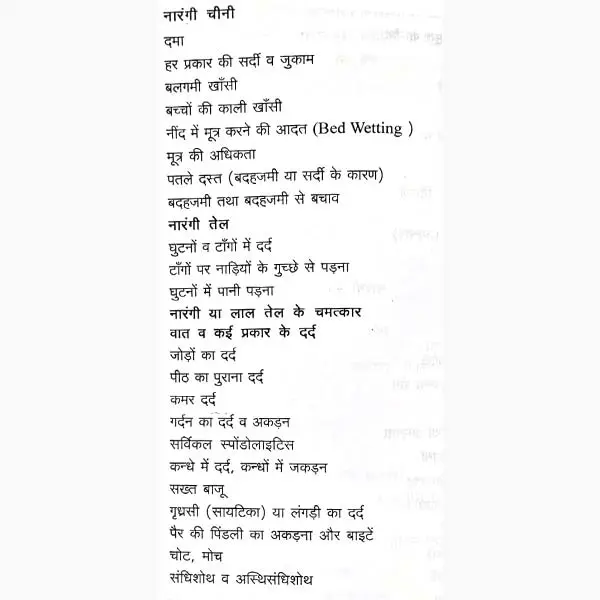 नारंगी चीनी
दमा
हर प्रकार की सर्दी व जुकाम
बलगमी खाँसी
बच्चों की काली खाँसी
नींद में मूत्र करने की आदत (Bed Wetting )
मूत्र की अधिकता
पतले दस्त (बदहजमी या सर्दी के कारण)
बदहजमी तथा बदहजमी से बचाव
नारंगी तेल
घुटनों व टाँगों में दर्द
टाँगों पर नाड़ियों के गुच्छे से पड़ना
घुटनों में पानी पड़ना
नारंगी या लाल तेल के चमत्कार
वात व कई प्रकार के दर्द
जोड़ों का दर्द
पीठ का पुराना दर्द
कमर दर्द
गर्दन का दर्द व अकड़न
सर्विकल स्पोंडोलाइटिस
कन्धे में दर्द, कन्धों में जकड़न
सख्त बाजू
गृध्रसी (सायटिका) या लंगड़ी का दर्द
पैर की पिंडली का अकड़ना और बाइटें
चोट, मोच
संधिशोथ व अस्थिसंधिशोथ